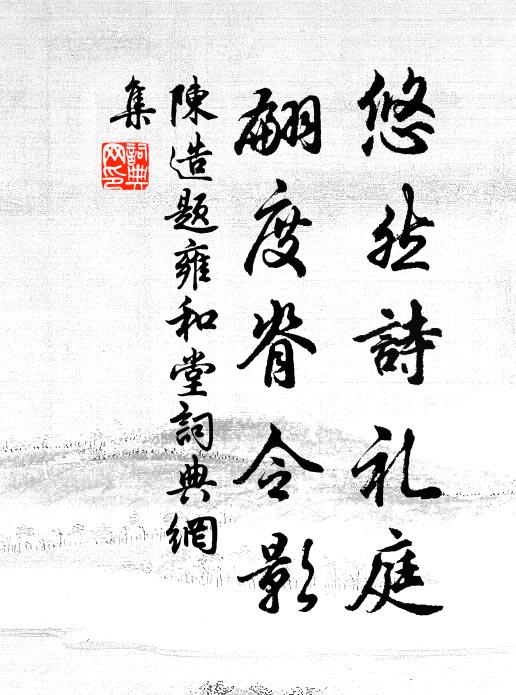 悠然詩礼庭
翩度脊令影
陳造题雍和堂詞典網
集
詞典网印